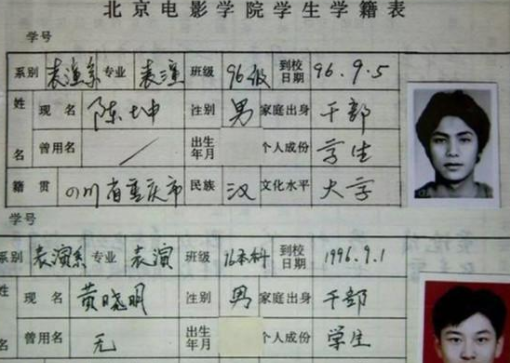 北京电影学院学生学籍表
学号
系别 表演系 专业 表演 班级 96级 到校日期 96.9.5
姓名 现名 陈坤 性别 男 家庭出身 干部
曾用名 / 出生年月 个人成份 学生
籍贯 四川省重庆市 民族 汉 文化水平 大学
学号
系别 表演系 专业 表演 班级 96本科 到校日期 1996.9.1
姓 现名 黄晓明 性别 男 家庭出身 干部
曾用名 无 出生年月 个人成份 学生